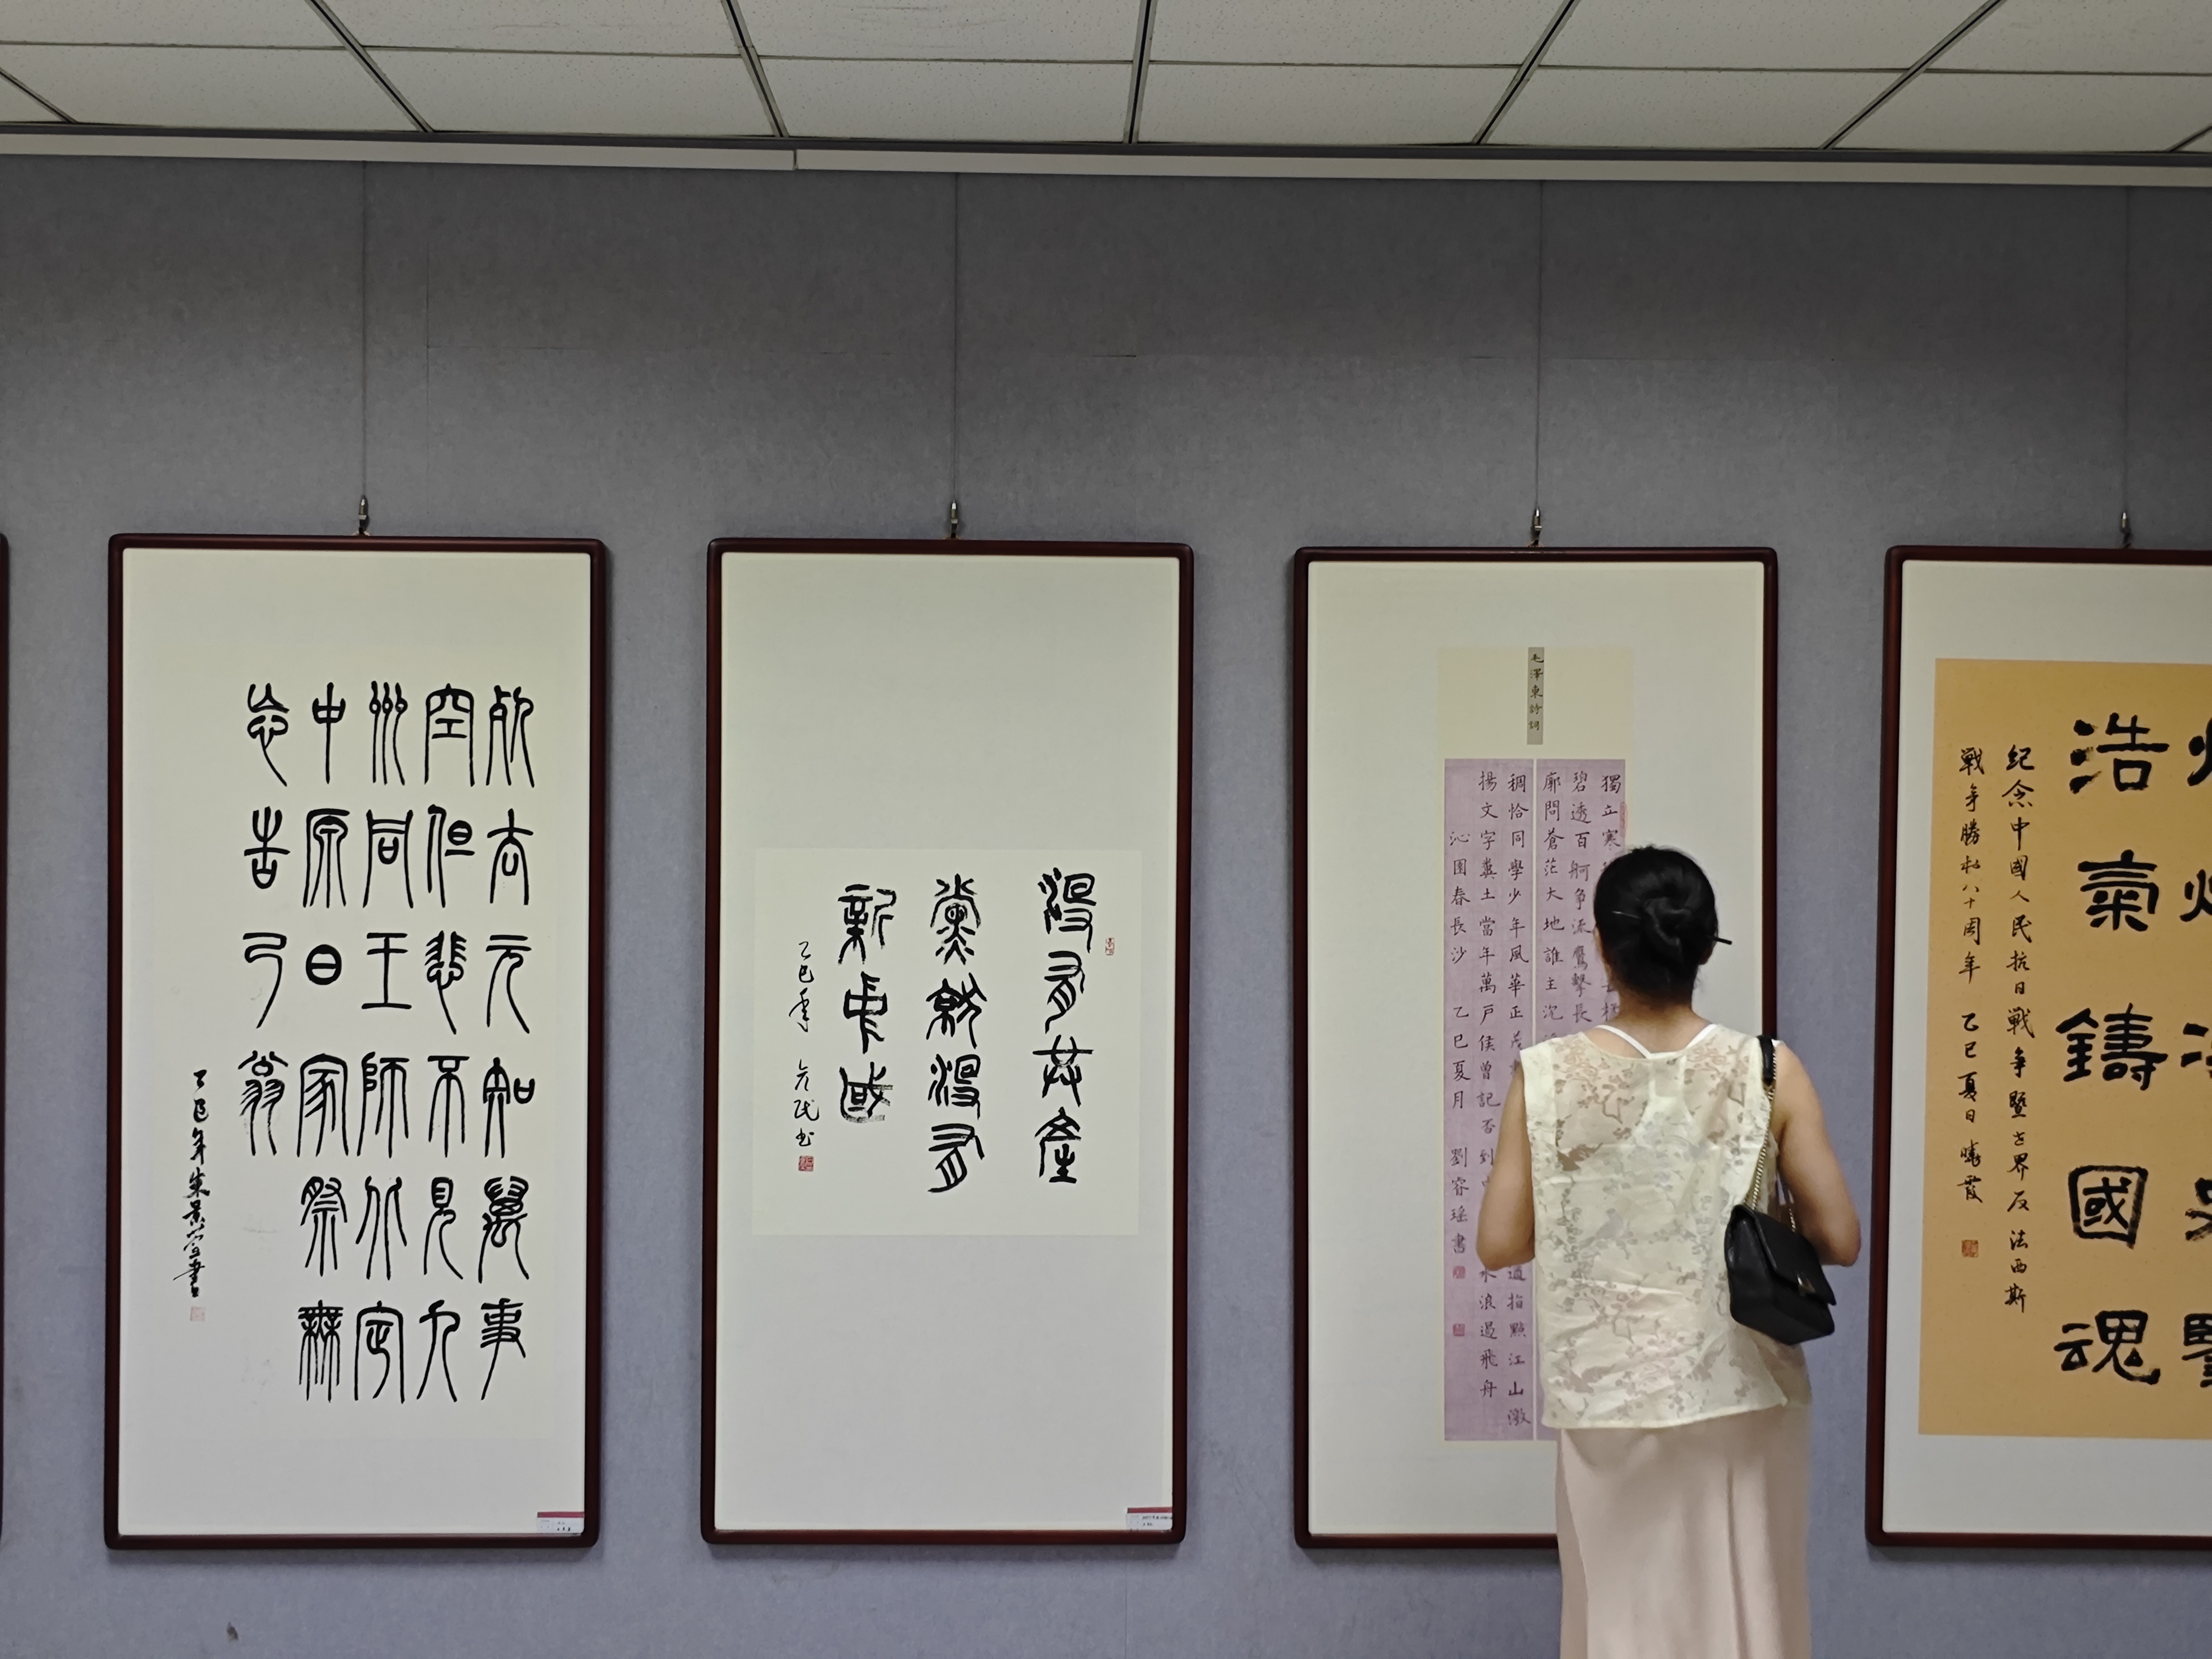 死去元知萬事
空但悲不見九
州同王師北定
中原日家祭無
忘告乃翁
乙巳年朱景書
没有共產
黨就没有
新中國
乙巳年 民书
毛澤東詩詞
獨立寒
碧透百舸争流鷹擊長
廓問蒼茫大地誰主沉
稠恰同學少年風華正茂 道指點江山激
揚文字糞土當年萬戶侯曾記否到中 水浪遏飛舟
沁園春長沙 乙巳夏月 劉容瑶書
浩氣鑄國魂
紀念中國人民抗日戰争暨世界反法西斯
戰争勝利八十周年 乙巳夏日 曉霞